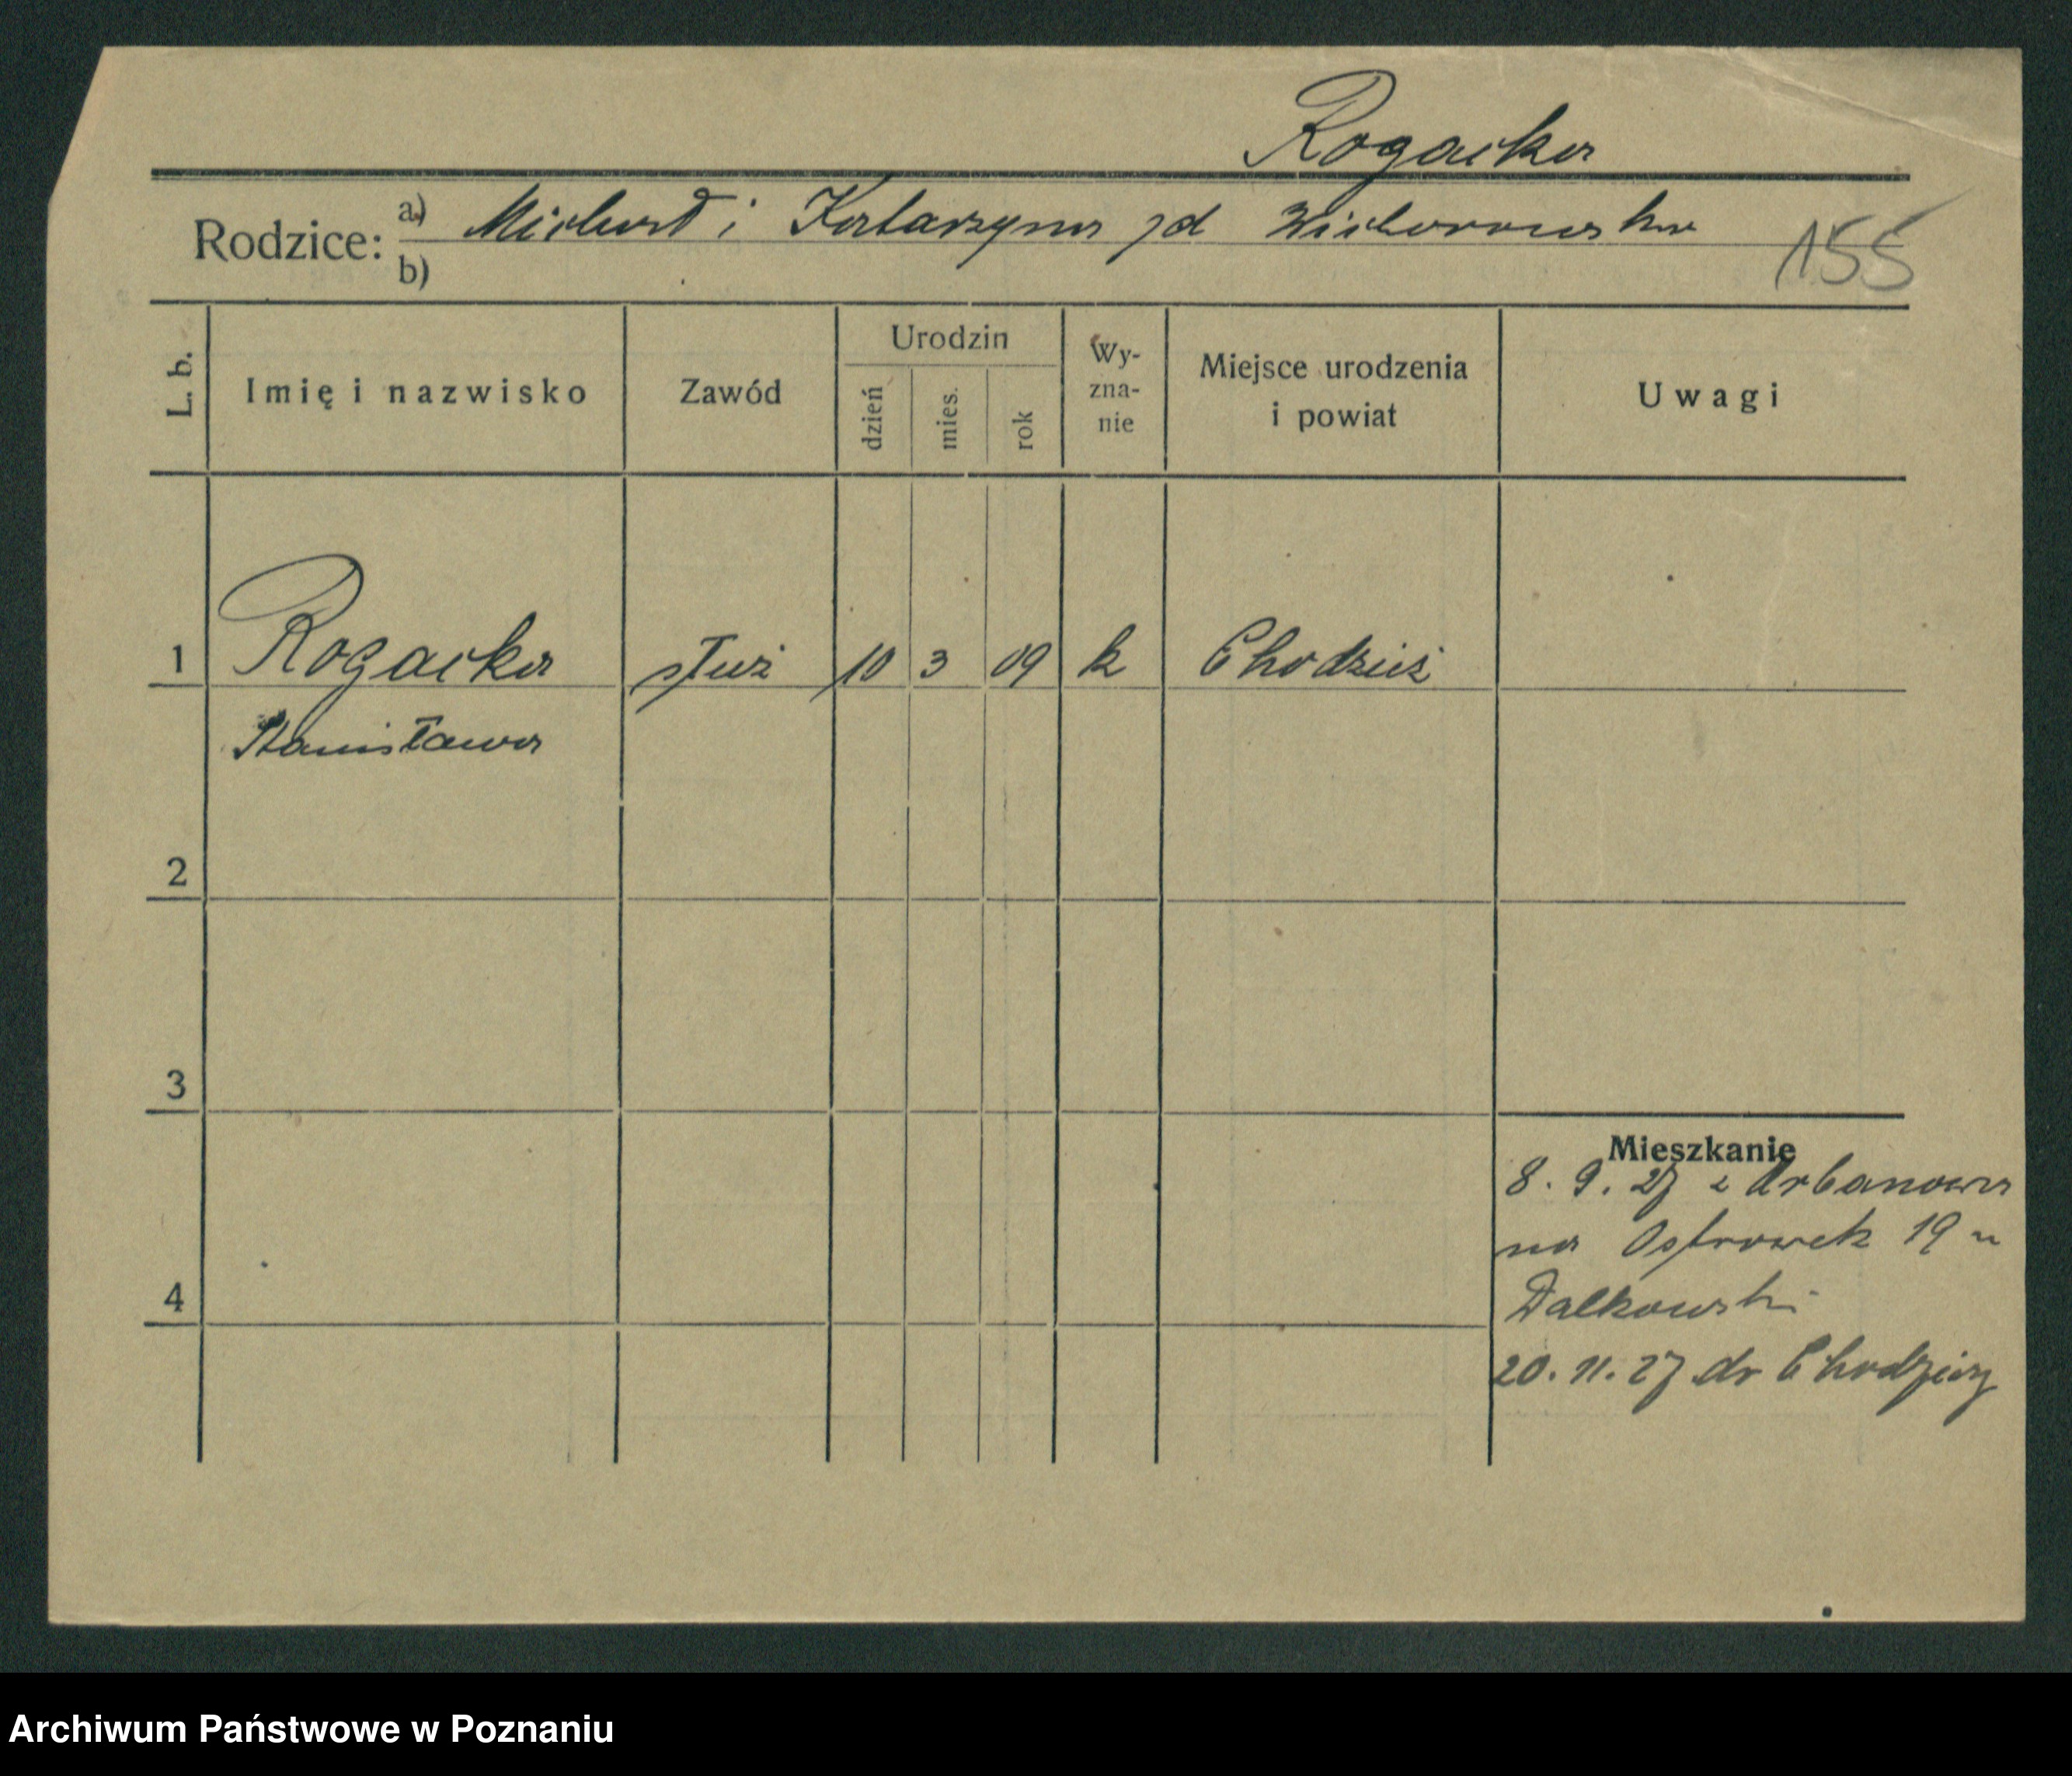 Rogacka
Rodzice: a) Michał i Katarzyna zd Wichorowska
155
b)
L. b. Imię i nazwisko Zawód Urodzin dzień mies. rok Wy-zna-nie Miejsce urodzenia i powiat Uwagi
1 Rogacka służ 10 3 09 k Chodzież
Stanisława
2
3
Mieszkanie
8. 9. 27 z Urbanowa
na Ostrowek 19 u
Dalkowski
4
20. 11. 27 do Chodzieży
Archiwum Państwowe w Poznaniu